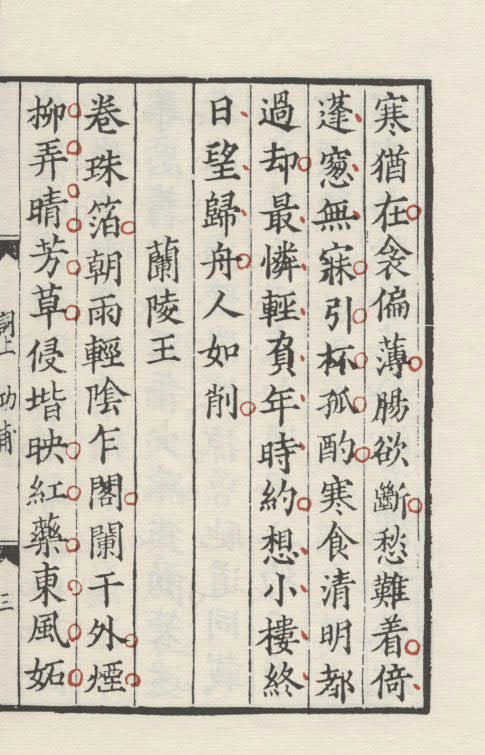 寒猶在衾偏薄腸欲斷愁難着倚
蓬窻無寐引杯孤酌寒食清明都
過却最憐輕負年時約想小樓終
日望歸舟人如削
蘭陵王
卷珠箔朝雨輕陰乍閣闌干外煙
柳弄晴芳草侵堦映紅藥東風妬
詞上 功甫
三